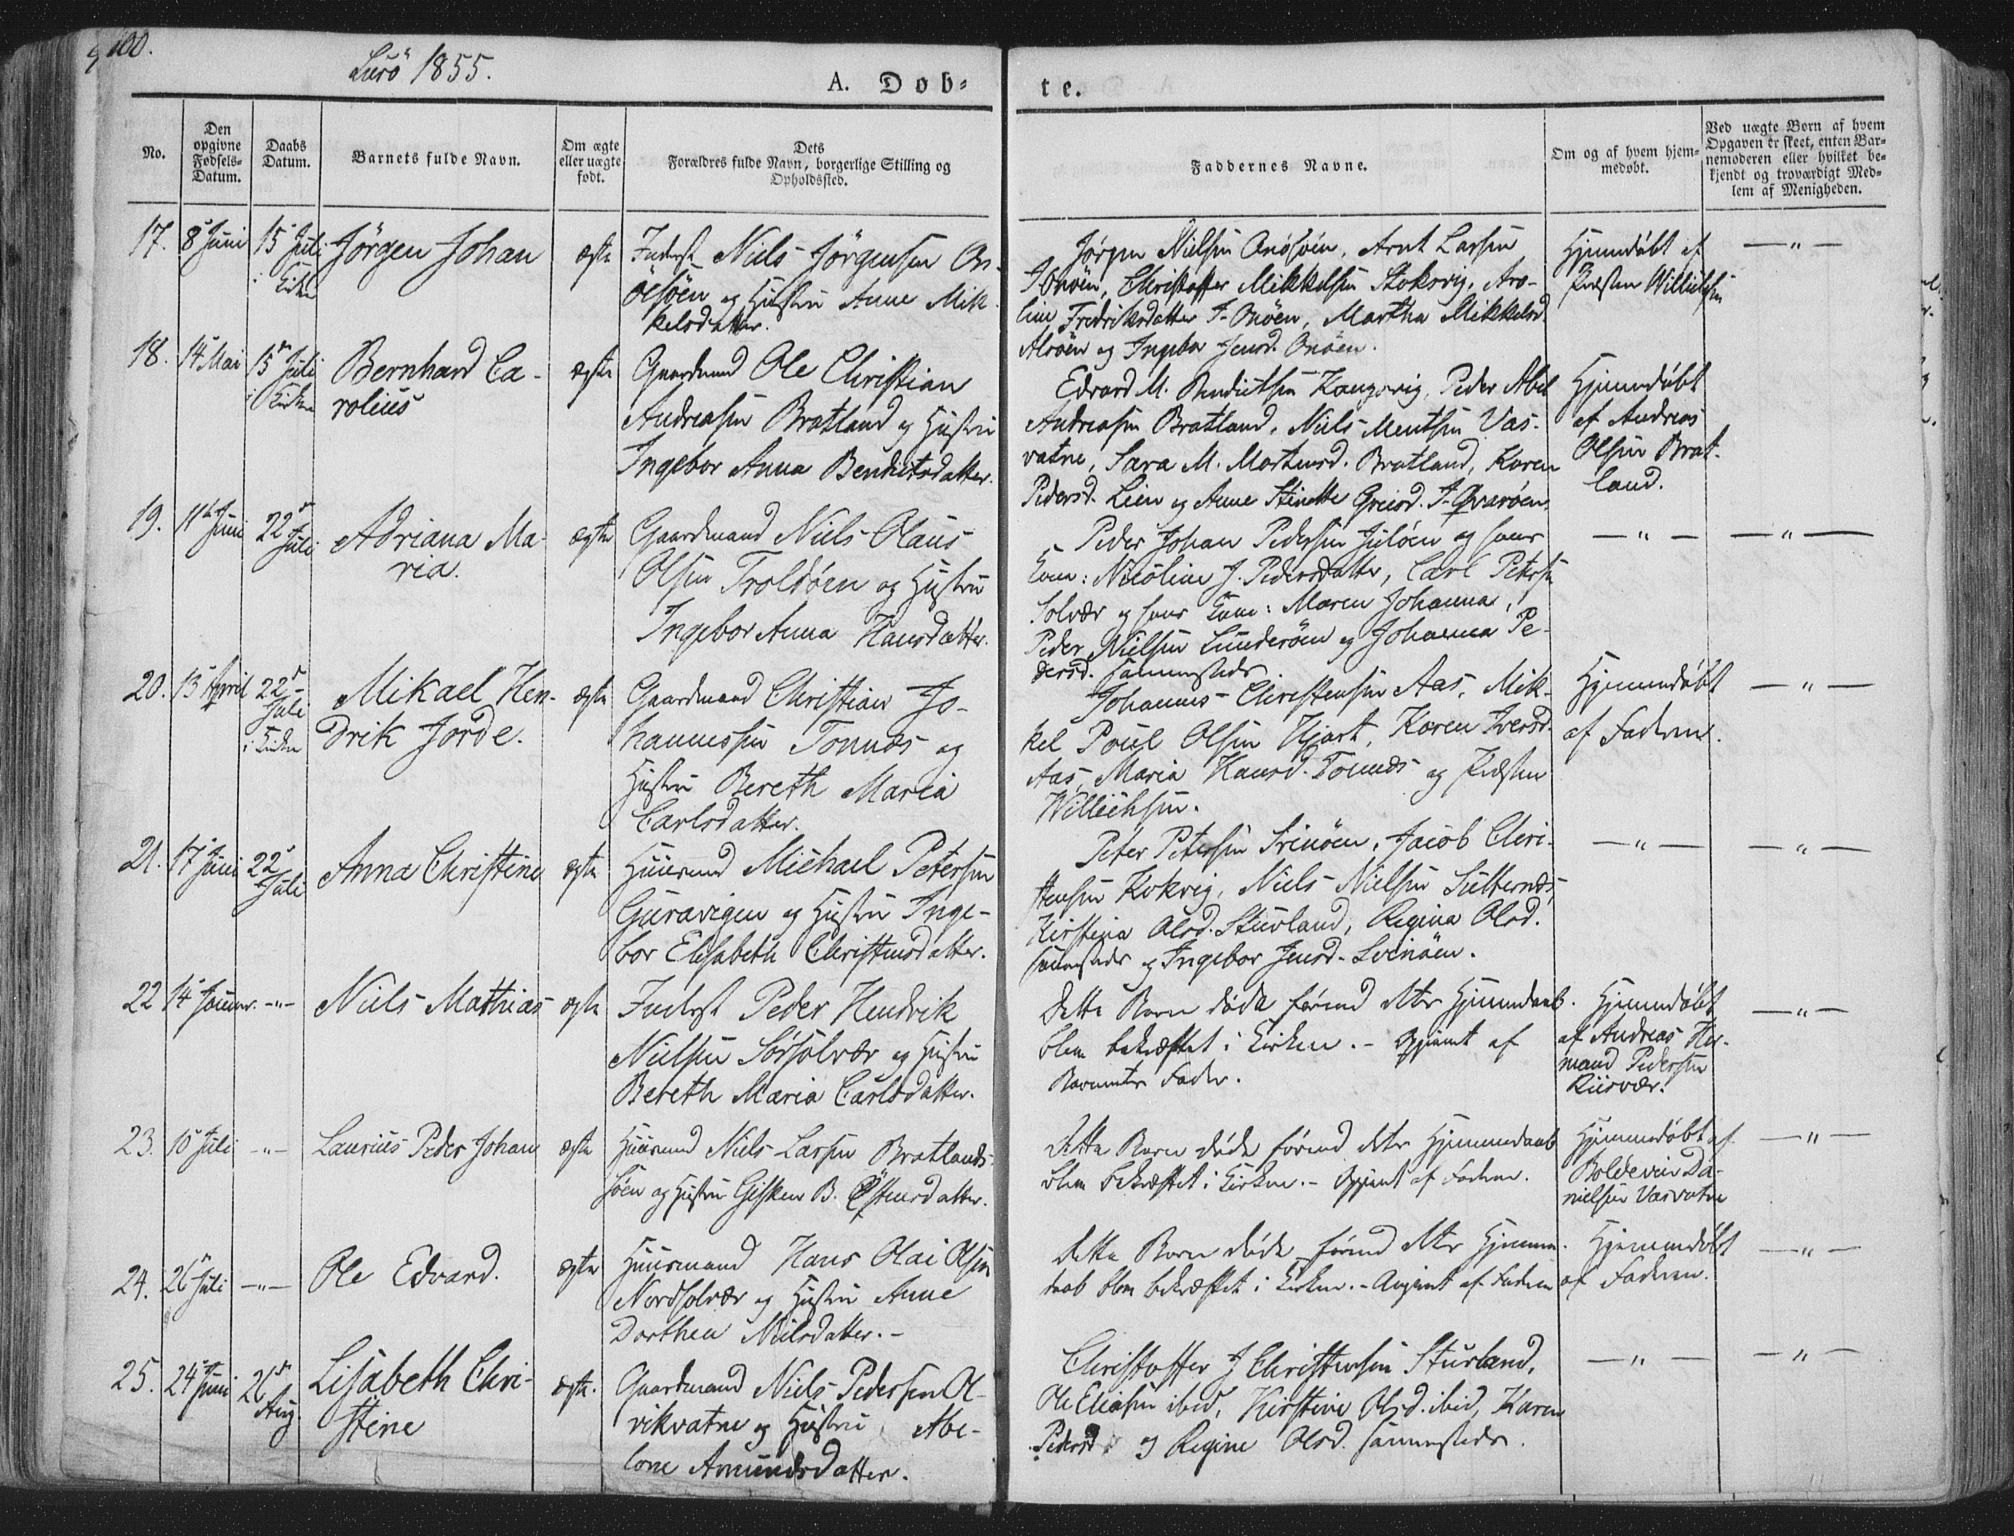 100.
Lurö 1855.
A. Dob-
te.
No.
Den opgivne Fødsels-Datum.
Daabs Datum.
Barnets fulde Navn.
Om ægte eller uægte født.
Dets Forældres fulde Navn, borgerlige Stilling og Opholdssted.
Faddernes Navne.
Om og af hvem hjemmedøbt.
Ved uægte Børn af hvem Opgaven er skeet, enten Barnemoderen eller hvilket bekjendt og troværdigt Medlem af Menigheden.
17. 8 Juni 15 Juli i Kirken
Jörgen Johan
ægte
Inderst Niels Jörgensen On-
ösöen og Hustru Anne Mik-
kelsdatter.
Jørgen Nielsen Onösöen, Arnt Larsen
Onöen, Christoffer Mikkelsen Stokvig,
Fredriksdatter Onöen, Martha Mikkelsd.
og Ingebor Jensd. Onöen.
Hjemmdöbt af
Præsten Willichsen
— " —
18. 14 Mai 15 Juli i Kirken
Bernhard Ca-
rolius
ægte
Gaardmand Ole Christian
Andreasen Bratland og Hustru
Ingebor Anna Bendictsdatter.
Edvard M. Bendictsen Kongsvig, Peder Abel
Andreasen Bratland, Niels Mentsen Vas-
vatne, Sara M. Mortensd. Bratland, Karen
Pedersd. Lien og Anne Stinette Qvaröen.
Hjemmdöbt
af Andreas
Olsen Brat-
land.
19. 11 Juni 22 Juli
Adriana Ma-
ria.
ægte
Gaardmand Niels Olaus
Olsen Troldöen og Hustru
Ingebor Anna Hansdatter.
Peder Johan Pedersen Juløen og hans
Kone: Nicoline J. Pedersdatter, Carl Petersen
Solvær og hans Kone: Maren Johanna,
Peder Nielsen Lunderöen og Johanna Pe-
dersd. sammesteds.
— " —
— " —
20. 13 April 22 Juli i Kirken
Mikael Hen-
drik Jorde.
ægte
Gaardmand Christian Jo-
hannessen Tonnes og
Hustru Bereth Maria
Carlsdatter.
Johannes Christensen Aas, Mik-
kel Poul Olsen Hjart, Karen Iversd.
Aas, Maria Hansd. Tonnes og Præsten
Willichsen.
Hjemmdöbt
af Faderen.
— " —
21. 17 Juni 22 Juli
Anna Christine
ægte
Huusmand Michael Petersen
Guravigen og Hustru Inge-
bor Elisabeth Christensdatter.
Peter Petersen Svinöen, Jacob Chri-
stensen Kokvig, Niels Nielsen Sutternæs,
Kirstina Olsd. Stuvland, Regina Olsd.
sammesteds og Ingebor Jensd. Svinöen.
— " —
— " —
22 14 Januar. — " —
Niels Mathias
ægte
Inderst Peder Hendrik
Nielsen Sörsolvær og Hustru
Bereth Maria Carlsdatter.
Dette Barn döde förend dets Hjemmedaab
blev bekræftet i Kirken. – Opgivet af
Barnets Fader.
Hjemmdöbt
af Andreas Her-
mand Pedersen
Riisvær.
— " —
23. 10 Juli — " —
Laurius Peder Johan
ægte
Huusmand Niels Larsen Bratlands-
söen og Hustru Gisken B. Östensdatter.
Dette Barn döde förend dets Hjemmedaab
blev bekræftet i Kirken. – Opgivet af Faderen.
Hjemmdöbt af
Boldevin Da-
nielsen Vasvatne
— " —
24. 26 Juli — " —
Ole Edvard.
ægte
Huusmand Hans Olai Olsen
Nordsolvær og Hustru Anne
Dorthea Nielsdatter. –
Dette Barn döde förend dets Hjemme-
daab blev bekræftet i Kirken. – Angivet af Faderen
Hjemmdöbt
af Faderen.
— " —
25. 24 Juni 26 Aug.
Lisabeth Chri-
stine
ægte.
Gaardmand Niels Pedersen Ol-
vikvatne og Hustru Abe-
lone Amundsdatter.
Christoffer J Christensen Stuvland,
Ole Eliasen ibid, Kirstine Olsd. ibid, Karen
Pedersd. og Regine Olsd. sammesteds.
— " —
— " —